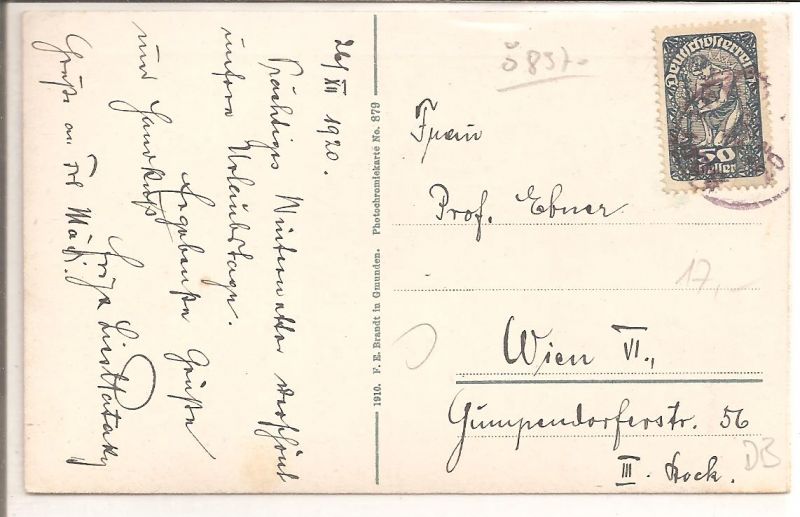 26/XII 1920.
Prächtiges Winterwetter verschönt
unsere Urlaubstage.
Ergebenste Grüße
und Handkuß
Grüße an Frl
1910. F. E. Brandt in Gmunden. Photochromiekarte No. 879
Š 857-
Deutschösterreich
50
Heller
Frau
Prof. Ebner
17,-
Wien VI.,
Gumpendorferstr. 56
III. Stock.
DB